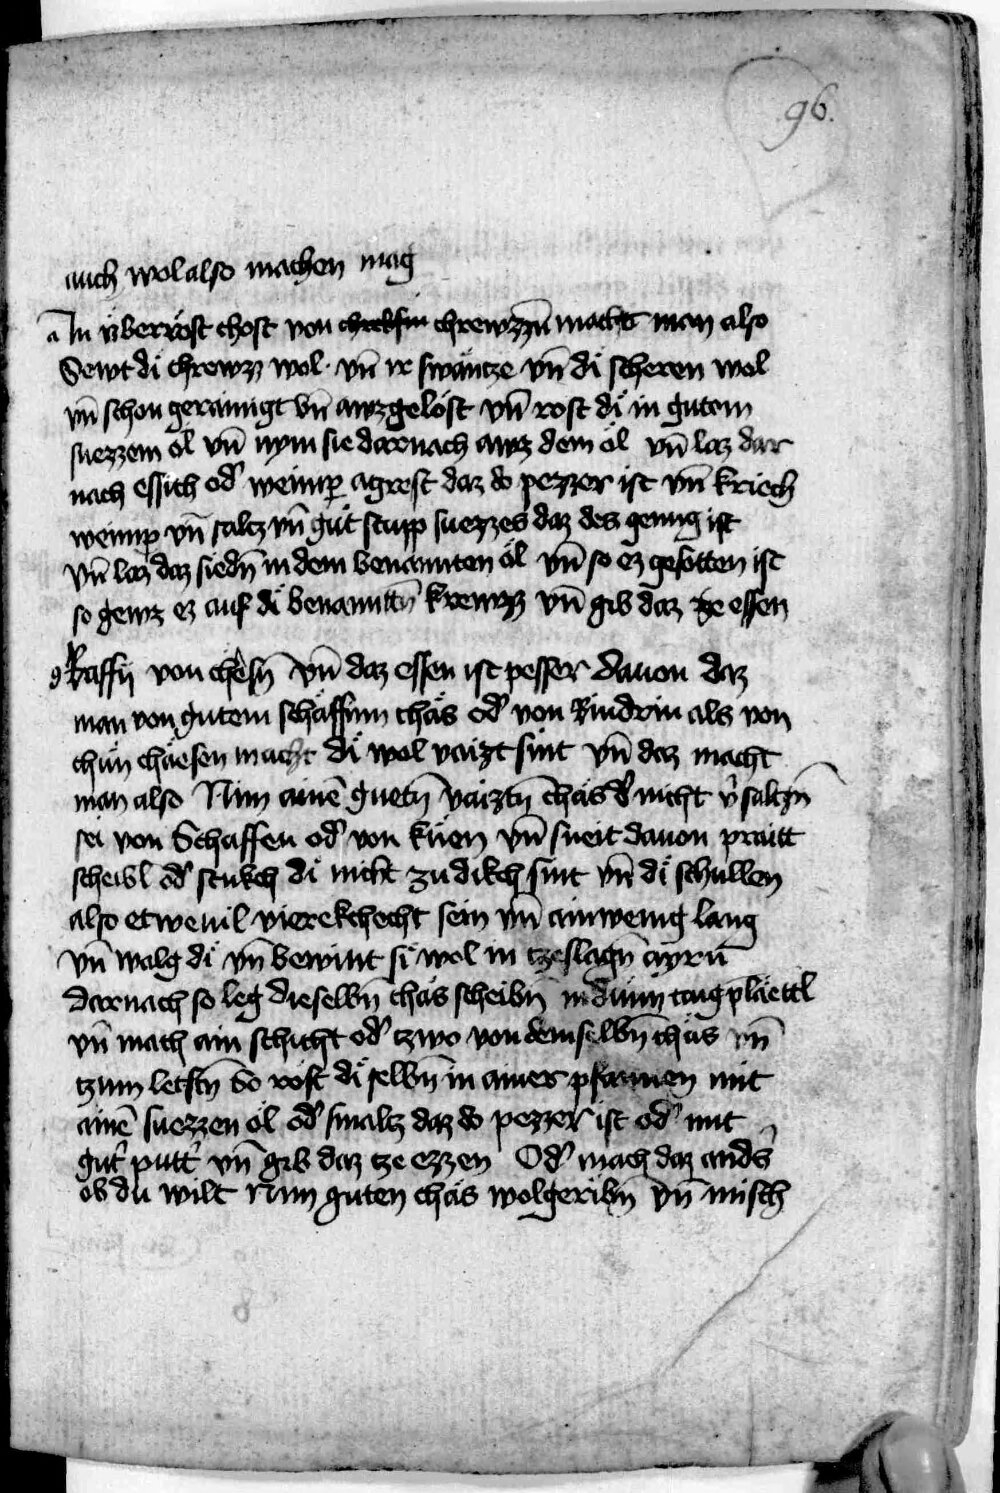 96.
auch wol also machen mag
a In vberröst chost von chrebsin chrewzzñ macht man also
Sewt di chrewzz wol · vñ ir swäntze vñ di scheren wol
vñ schon gerainigt vñ awzgelöst vñ rost di in gutem
suezzem öl vñ nym sie darnach awz dem öl vñ laz dar
nach essich od' weinper agrest daz do pezzer ist vñ kriech
weinper vñ saltz vñ gut stupp suezzes daz des genug ist
vñ laz daz siedñ in dem benannten öl vñ so ez gesotten ist
so gewz ez auf di benanttñ krewzz vñ gib daz tze essen
g Raffij von chesñ vñ daz essen ist pesser dauon daz
man von gutem schäffinn chäs od' von Rindrin als von
chün chäesen macht di wol vaizt sint vñ daz macht
man also Nim ainē guetñ vaiztñ chäs d' nicht v'saltzñ
sei von Schaffen od' von küen vñ sneit dauon praitt
scheibl od' stukch di nicht zu dikch sint vñ di schullen
also etweuil vierekchecht sein vñ ain wenig lang
vñ walg di vñ bewint si wol in tzeslagñ ayrñ
darnach so leg dieselbñ chäs scheibñ in dünn taig pläettl
vñ mach ain schicht od' tzwo von demselbñ chäs vñ
tzum letstñ So röst di selbñ in ainer pfannen mit
ainē suezzen öl od' smaltz daz do pezzer ist od' mit
gut' putt' vñ gib daz tze ezzen Od' mach daz anders
ob du wilt Nim guten chäs wolgeribñ vñ misch